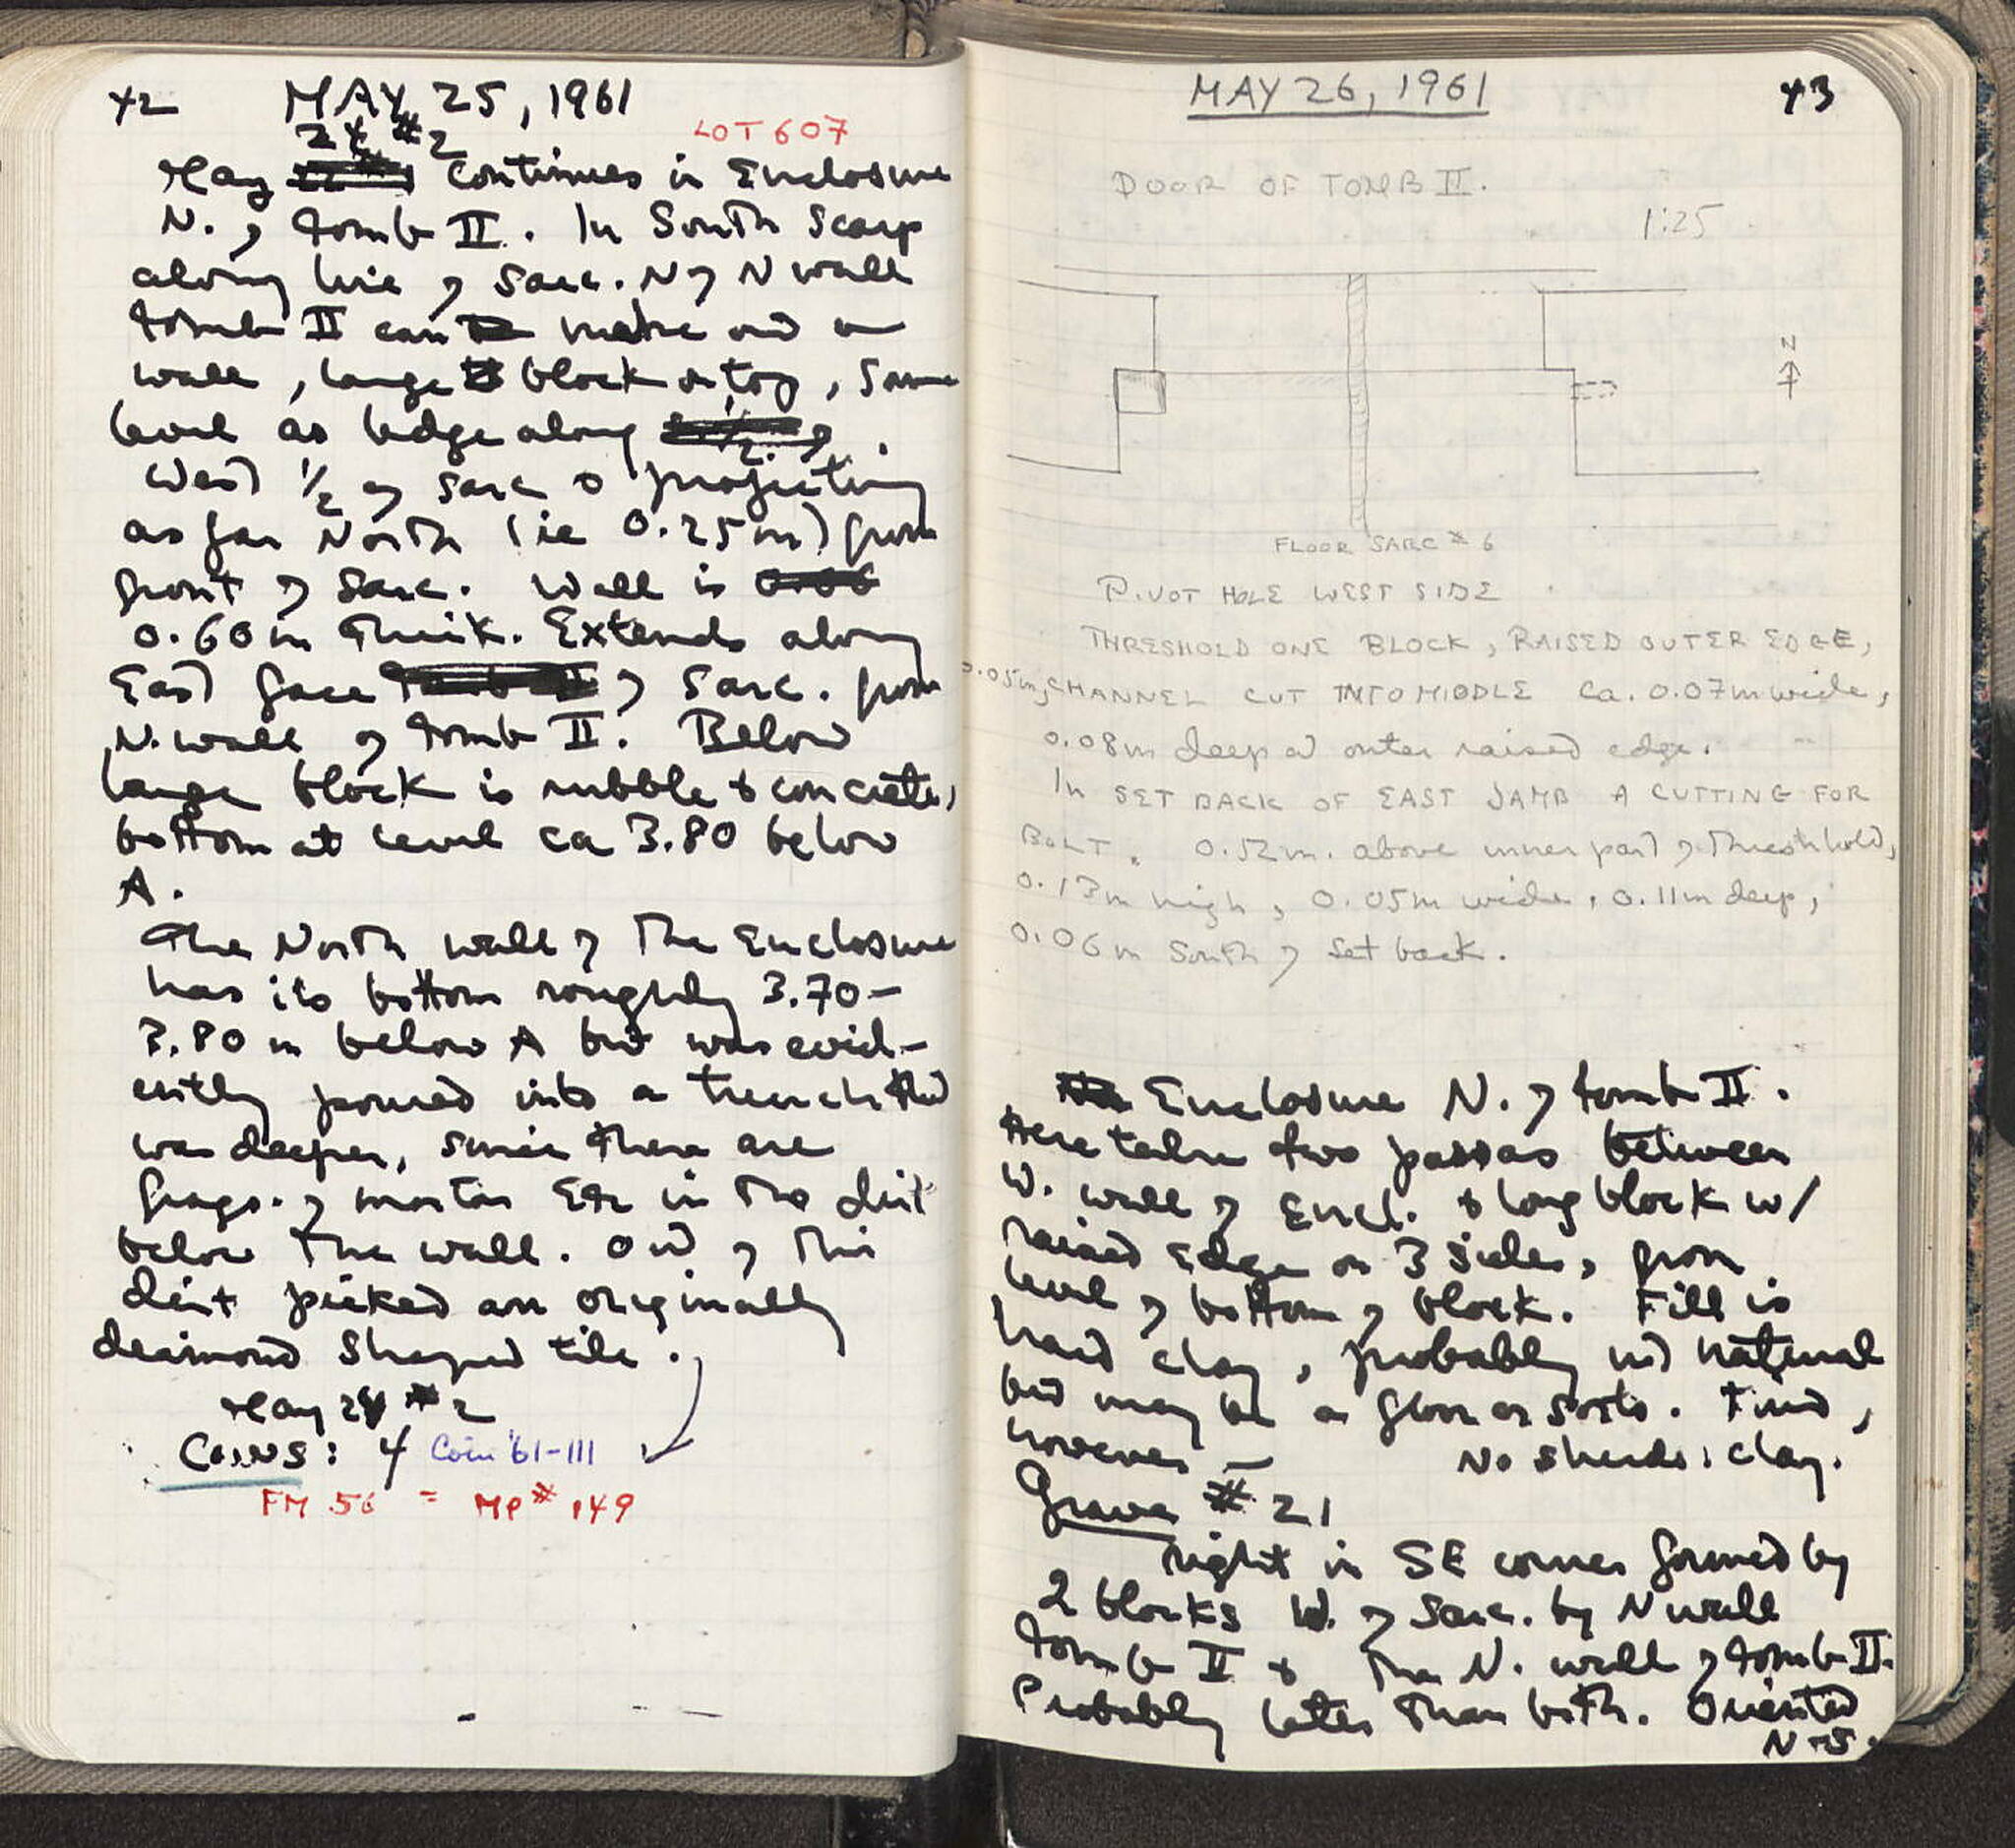 42 MAY 25, 1961
LOT 607
24 #2
May continues in Enclosure
N. of tomb II. In South Scarp
along line of Sarc. N of N wall
tomb II can make out a
wall, large block on top, same
level as ledge along
West 1/2 of Sarc & projecting
as far North (ie 0.25m) from
front of Sarc. Wall is
0.60m thick. Extends along
East face of Sarc. from
N. wall of tomb II. Below
large block is rubble & concrete,
bottom at level ca 3.80 below
A.
The North wall of the Enclosure
has its bottom roughly 3.70-
3.80 m below A but was evid-
ently poured into a trench that
was deeper, since there are
frags. of mortar Etc in the dirt
below the wall. Out of this
dirt picked an originally
deamond shaped tile.
May 24 #2
Coins: 4 Coin '61-111
FM 56 = MP# 149
MAY 26, 1961 43
DOOR OF TOMB II.
1:25
N
FLOOR SARC #6
PIVOT HOLE WEST SIDE
THRESHOLD ONE BLOCK, RAISED OUTER EDGE,
0.05m, CHANNEL CUT INTO MIDDLE ca. 0.07m wide,
0.08m deep at outer raised edge.
IN SET BACK OF EAST JAMB A CUTTING FOR
BOLT. 0.52m. above inner part of threshhold,
0.13m high, 0.05m wide, 0.11m deep,
0.06m South of Set back.
Enclosure N. of tomb II.
Here take two passas between
W. wall of Encl. & long block w/
raised edge on 3 sides, from
level of bottom of block. Fill is
hard clay, probably not natural
but may be a floor of sorts. Find,
however - No sherds: clay.
Grave #21
right in SE corner formed by
2 blocks W. of Sarc. by N wall
tomb II & the N. wall of tomb II.
Probably later than both. Oriented
N-S.